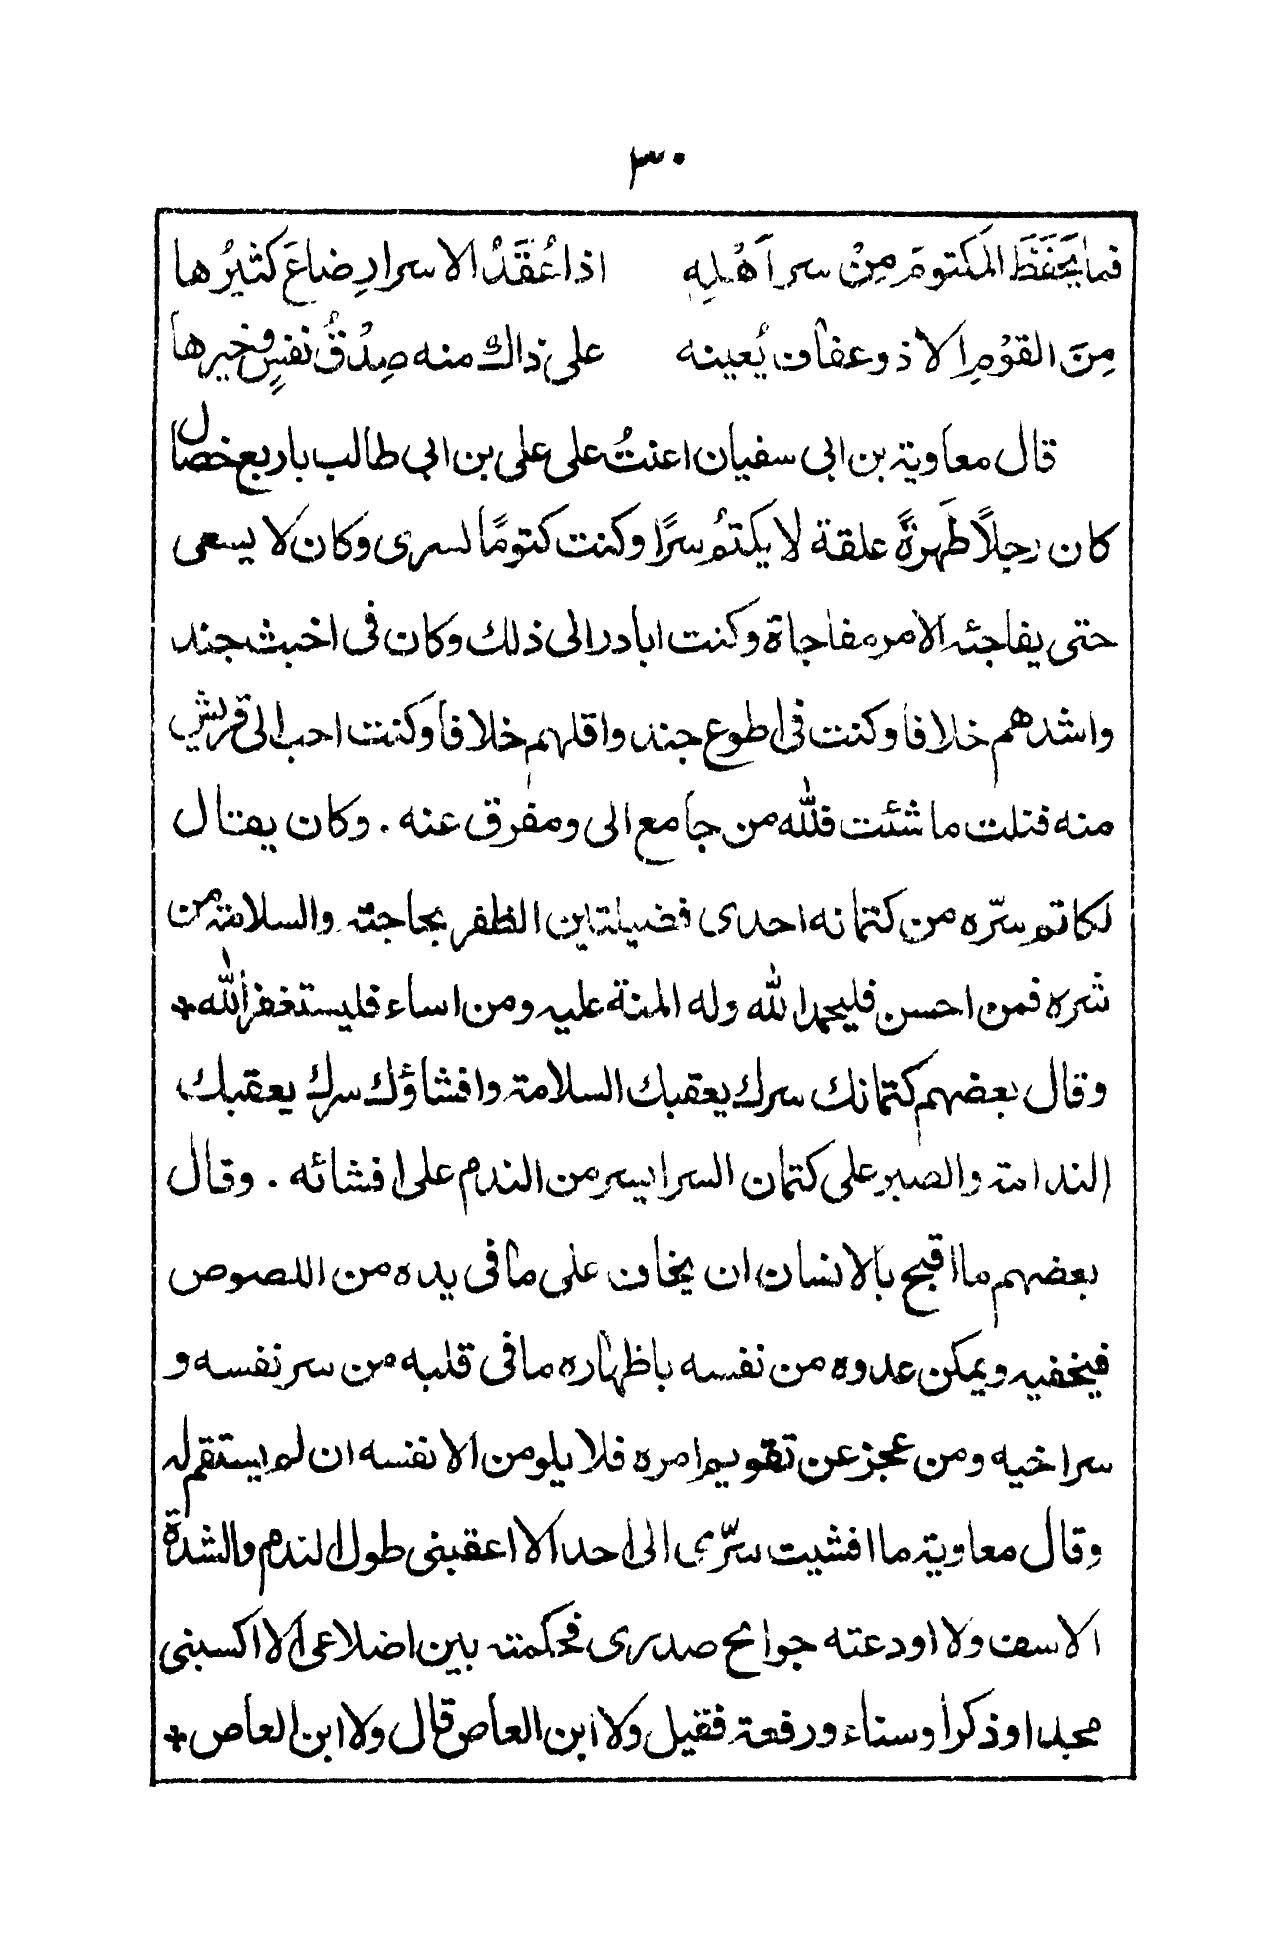 ٣٠
فما يَحفَظُ المَكتومَ مِنْ سر اَهْلِهِ اذا عُقَدُ الاسرارِ ضاعَ كثيرُها
مِنَ القوْمِ الا ذو عفاف يُعينه على ذاك منه صِدْقُ نفسٍ وخيرها
قال معاوية بن ابى سفيان اعنتُ على على بن ابى طالب باربع خصال
كان رجلاً ظَهرةً علقة لا يكتمُ سرًا وكنت كتومًا لسرى وكان لا يسعى
حتى يفاجئه الامر مفاجاة وكنت ابادر الى ذلك وكان فى اخبث جند
واشدهم خلافا وكنت فى اطوع جند واقلهم خلافا وكنت احب الى قريش
منه فنلت ما شئت فلله من جامع الى ومفرق عنه . وكان يقال
لكاتم سرّه من كتمانه احدى فضيلتاين الظفر بحاجته والسلامة من
شره فمن احسن فليحمد الله وله المنة عليه ومن اساء فليستغفر الله +
وقال بعضهم كتمانك سرك يعقبك السلامة وافشاؤك سرك يعقبك
الندامة والصبر على كتمان السر ايسر من الندم على افشائه . وقال
بعضهم ما اقبح بالانسان ان يخاف على ما فى يده من اللصوص
فيخفيه ويمكن عدوه من نفسه باظهاره ما فى قلبه من سر نفسه و
سر اخيه ومن عجز عن تقويم امره فلا يلومن الا نفسه ان لم يستقم له
وقال معاوية ما افشيت سرّى الى احد الا اعقبنى طول الندم والشدة
الاسف ولا اودعته جوانح صدرى فحكمته بين اضلاعى الا اكسبنى
مجدا وذكرا وسناء ورفعة فقيل ولا ابن العاص قال ولا ابن العاص +